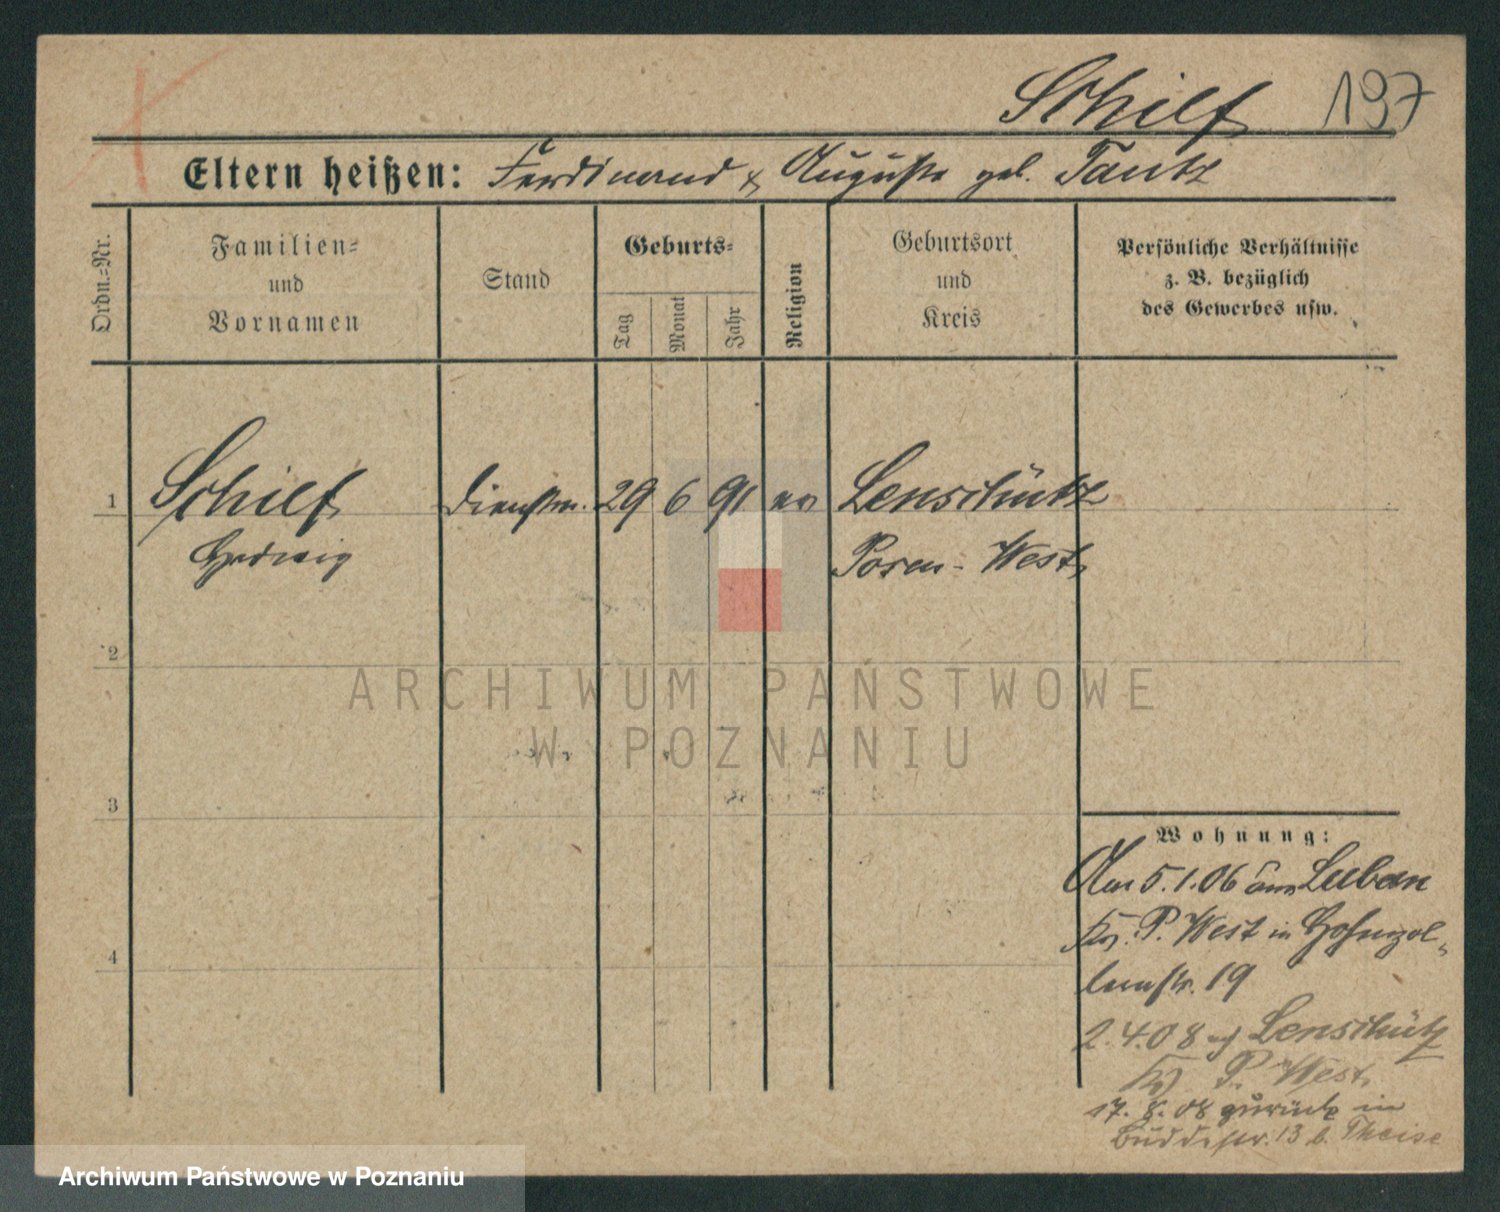 Schilf 197
Eltern heißen: Ferdinand & Auguste geb. Tautz
Ordn.=Nr.
Familien=
und
Vornamen
Stand
Geburts=
Tag
Monat
Jahr
Religion
Geburtsort
und
Kreis
Persönliche Verhältnisse
z. B. bezüglich
des Gewerbes usw.
1 Schilf Dienstm. 29 6 91 ev Lenschütz
Hedwig Posen-West
2
ARCHIWUM PAŃSTWOWE
W POZNANIU
3
4
Wohnung:
Am 5.1.06 von Luban
Kr. P. West in Hohenzol-
lernstr. 19
2.4.08 Lenschütz
Kr. P. West
17. 8. 08 zurück in
Buddestr. 13 b. Theise
Archiwum Państwowe w Poznaniu